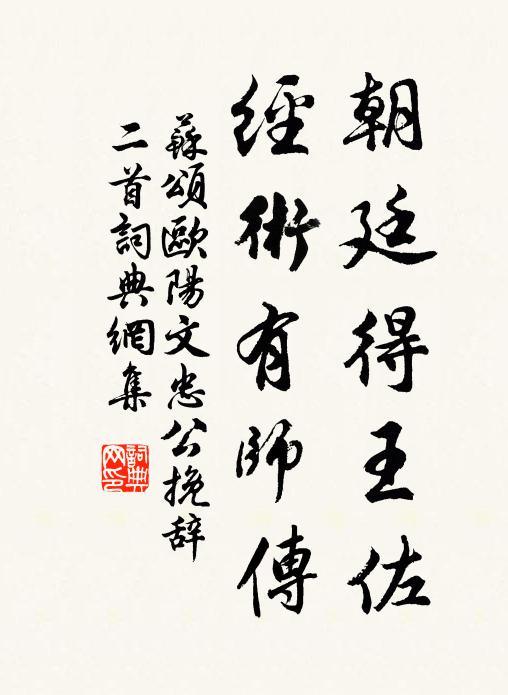 朝廷得王佐
經術有師傳
蘇頌歐陽文忠公挽辞
二首詞典網集
詞典网印